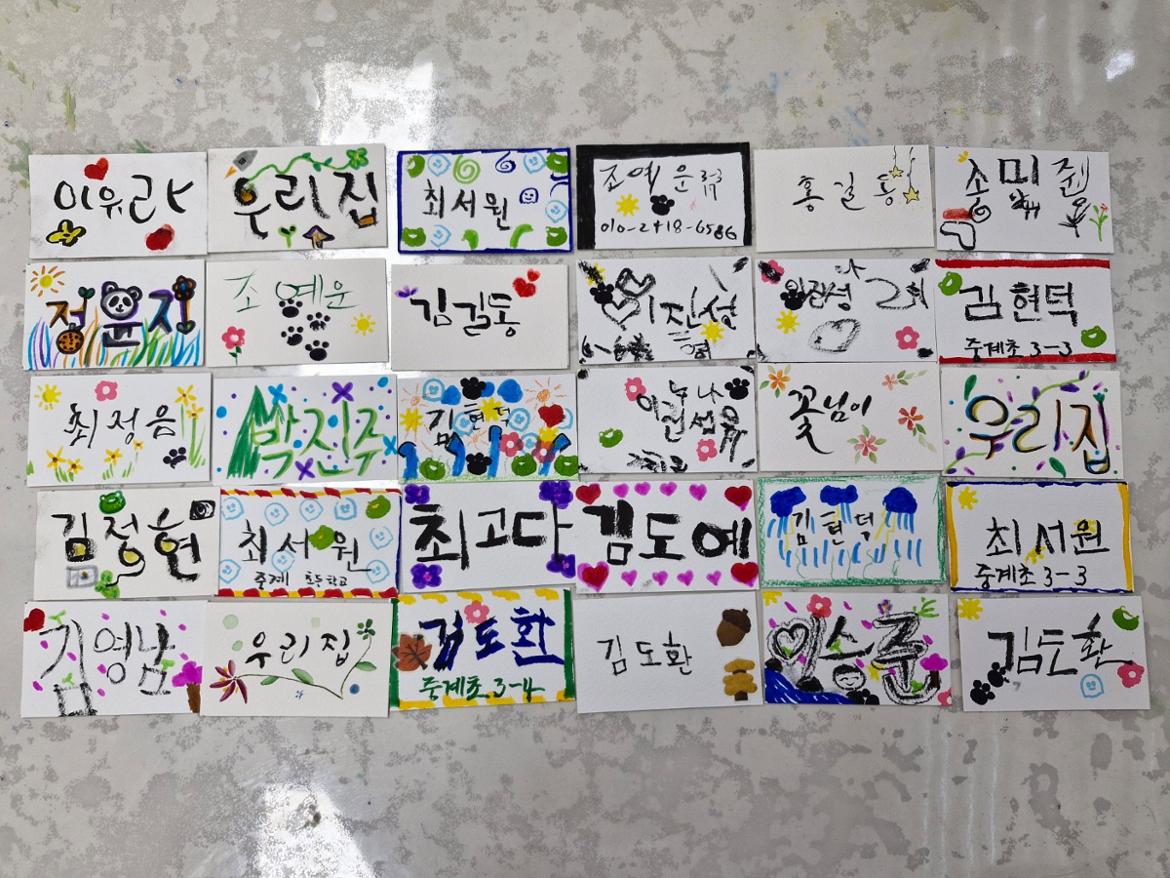 이유라
우리집
최서원
조여운
010-2718-6586
홍길동
송미
정윤지
조예운
김길동
이진성
이진성
김현덕
중계초 3-3
최정음
박진주
김현덕
누나
꽃님이
우리집
김정현
최서원
중계 초등학교
최고다
김도예
김현덕
최서원
중계초 3-3
김영남
우리집
김도환
중계초 3-4
김도환
이승준
김도환